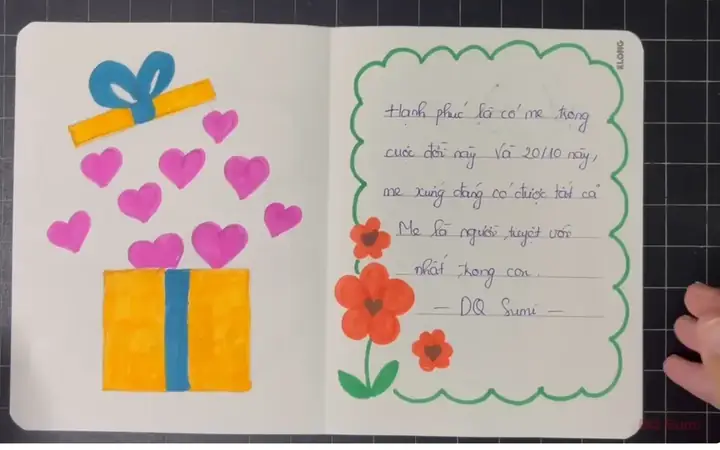 Hạnh phúc là có mẹ trong
cuộc đời này Và 20/10 này,
mẹ xứng đáng có được tất cả
Mẹ là người tuyệt vời
nhất trong con.
— DQ Sumi —
KLONG